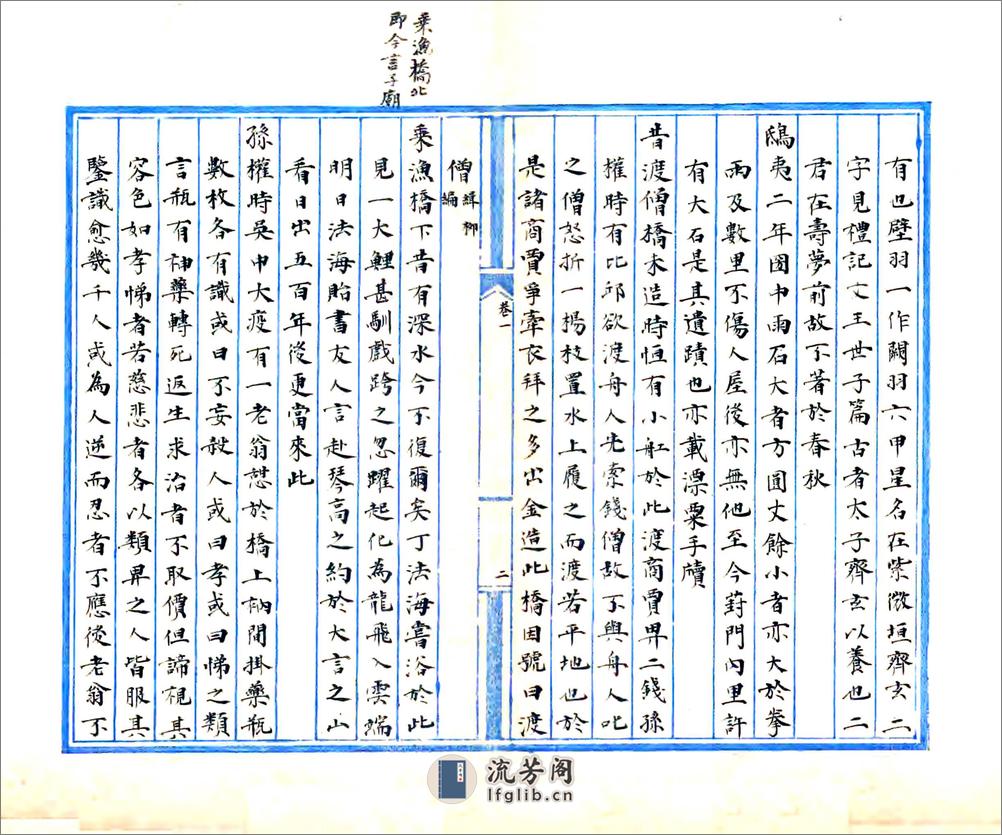 有也壁羽一作關羽六甲星名在紫微垣齊玄二
字見禮記文王世子篇古者太子齊玄以養也二
君在壽夢前故不著於春秋
鴟夷二年國中雨石大者方圓丈餘小者亦大於拳
雨及數里不傷人屋後亦無他至今葑門內里許
有大石是其遺蹟也亦載漂粟手牘
昔渡僧橋未造時恒有小舡於此渡商賈畀二錢孫
權時有比邱欲渡舟人先索錢僧故不與舟人叱
之僧怒折一楊枝置水上履之而渡若平地也於
是諸商賈爭牽衣拜之多出金造此橋因號曰渡
卷一
二
僧 緝柳編
乘漁橋北
即今言子廟
乘漁橋下昔有深水今不復爾矣丁法海嘗浴於此
見一大鯉甚馴戲跨之忽躍起化為龍飛入雲端
明日法海貽書友人言赴琴高之約於大言之山
看日出五百年後更當來此
孫權時吳中大疫有一老翁憇於橋上衲間掛藥瓶
數枚各有識或曰不妄殺人或曰孝或曰悌之類
言瓶有神藥轉死返生求治者不取價但諦視其
容色如孝悌者若慈悲者各以類畀之人皆服其
鑒識愈幾千人或為人逆而忍者不應後老翁不
流芳阁
lfglib.cn